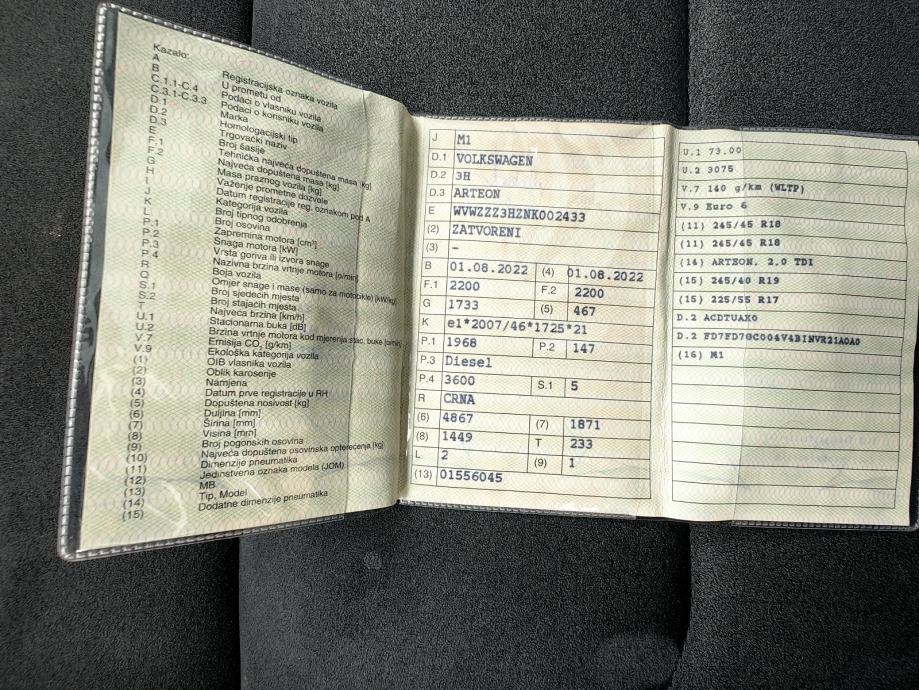 Kazalo:
A Registracijska oznaka vozila
B U prometu od
C.1.1-C.4 Podaci o vlasniku vozila
C.3.1-C.3.3 Podaci o korisniku vozila
D.1 Marka
D.2 Homologacijski tip
D.3 Trgovački naziv
E Broj šasije
F.1 Tehnička najveća dopuštena masa [kg]
F.2 Najveća dopuštena masa [kg]
G Masa praznog vozila [kg]
H Važenje prometne dozvole
I Datum registracije reg. oznakom pod A
J Kategorija vozila
K Broj tipnog odobrenja
L Broj osovina
P.1 Zapremina motora [cm³]
P.2 Snaga motora [kW]
P.3 Vrsta goriva ili izvora snage
P.4 Nazivna brzina vrtnje motora [o/min]
R Boja vozila
Q Omjer snage i mase (samo za motocikle) [kW/kg]
S.1 Broj sjedećih mjesta
S.2 Broj stajaćih mjesta
T Najveća brzina [km/h]
U.1 Stacionarna buka [dB]
U.2 Brzina vrtnje motora kod mjerenja stac. buke [o/min]
V.7 Emisija CO₂ [g/km]
V.9 Ekološka kategorija vozila
(1) OIB vlasnika vozila
(2) Oblik karoserije
(3) Namjena
(4) Datum prve registracije u RH
(5) Dopuštena nosivost [kg]
(6) Duljina [mm]
(7) Širina [mm]
(8) Visina [mm]
(9) Broj pogonskih osovina
(10) Najveća dopuštena osovinska opterećenja [kg]
(11) Dimenzije pneumatika
(12) Jedinstvena oznaka modela (JOM)
(13) MB
(14) Tip, Model
(15) Dodatne dimenzije pneumatika
J M1
D.1 VOLKSWAGEN
D.2 3H
D.3 ARTEON
E WVWZZZ3HZNK002433
(2) ZATVORENI
(3) –
B 01.08.2022 (4) 01.08.2022
F.1 2200 F.2 2200
G 1733 (5) 467
K e1*2007/46*1725*21
P.1 1968 P.2 147
P.3 Diesel
P.4 3600 S.1 5
R CRNA
(6) 4867 (7) 1871
(8) 1449 T 233
L 2 (9) 1
(13) 01556045
U.1 73.00
U.2 3075
V.7 140 g/km (WLTP)
V.9 Euro 6
(11) 245/45 R18
(11) 245/45 R18
(14) ARTEON, 2.0 TDI
(15) 245/40 R19
(15) 225/55 R17
D.2 ACDTUAX0
D.2 FD7FD7GC004V4BINVR21A0A0
(16) M1